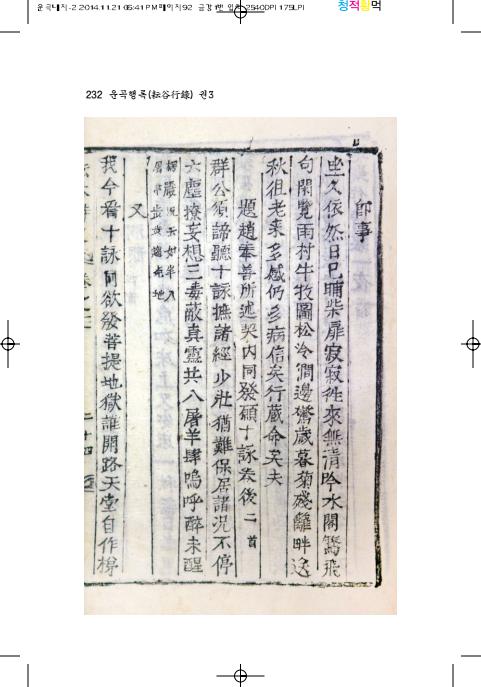 운곡내지-2 2014.11.21 05:41 PM 페이지92
2540DPI 175LPI
청적황먹
232 운곡행록(耘谷行錄) 권3
即事
坐久依然日已晡柴扉寂寂往來無清吟水閣鷺飛
句閑覽雨村牛牧圖松冷澗邊驚歲暮菊殘籬畔逸
秋徂老來多感仍多病信矣行藏命矣夫
題趙奉善所述契內同發願十詠卷後二首
群公須諦聽十詠摭諸經少壯猶難保居諸況不停
六塵撩妄想三毒蔽真靈共入屠羊肆嗚呼醉未醒
又
我今看十詠同欲發菩提地獄誰開路天堂自作梯
二十四